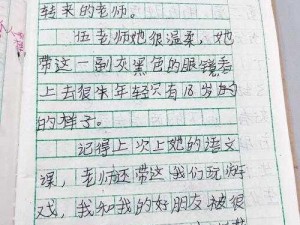 转来的老师。
伍老师她很温柔，她
带这一副灰黑色的眼镜看
上去很年轻只有18岁的
的样子。
记得上次上她的语文
课，老师还带这我们玩游
戏，我和我的好朋友被很